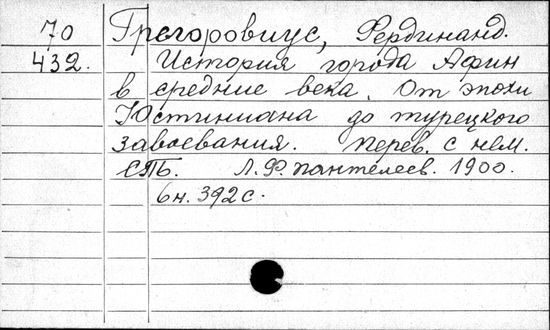 70 Грегоровиус, Фердинанд.
432. История города Афин
в средние века. От эпохи
Юстиниана до турецкого
завоевания. Перев. с нем.
СПБ. Л.Ф. Пантелеев. 1900.
6н. 392 с.